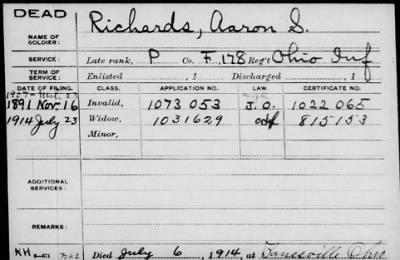 DEAD
NAME OF SOLDIER: Richards, Aaron S.
SERVICE: Late rank, P Co. F, 178 Reg't Ohio Inf
TERM OF SERVICE: Enlisted , 1 Discharged , 1
DATE OF FILING. CLASS. APPLICATION NO. LAW. CERTIFICATE NO.
1891 Nov. 16 Invalid, 1073 053 J.O. 1022 065
1914 July 23 Widow, 1031629 815153
Minor,
ADDITIONAL SERVICES:
REMARKS:
KH Died July 6, 1914, at Zanesville Ohio